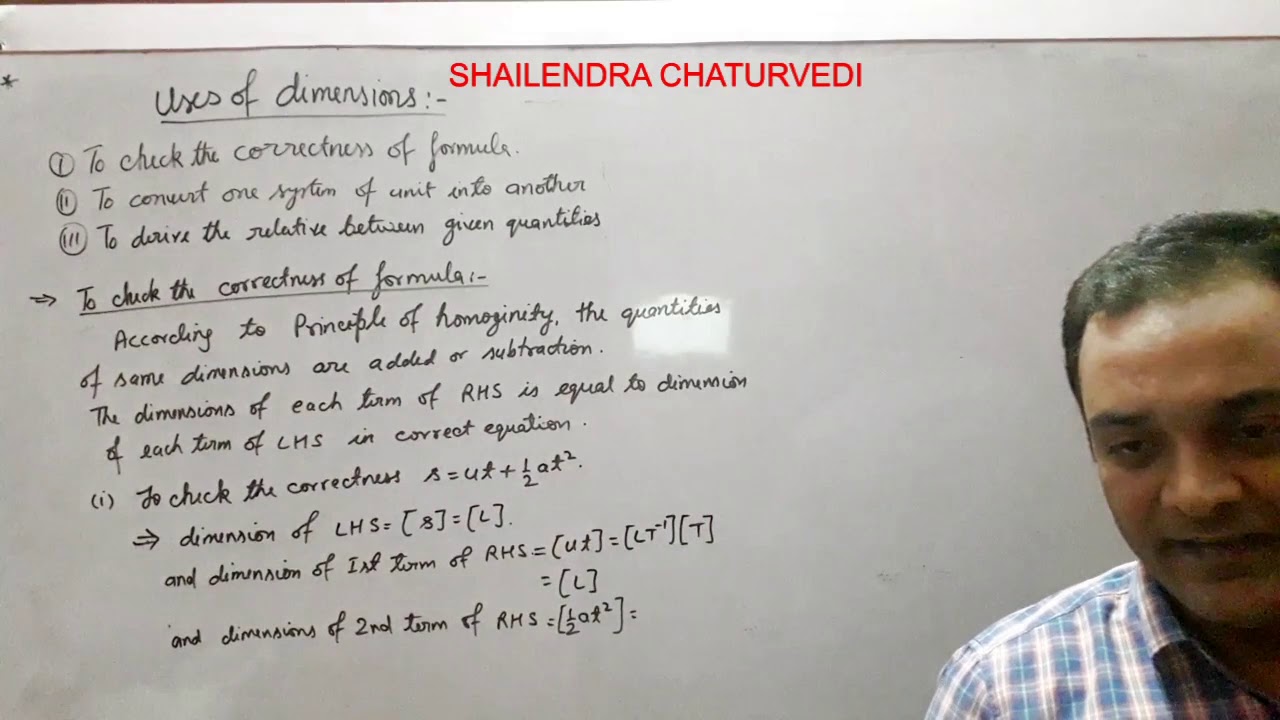 SHAILENDRA CHATURVEDI
* Uses of dimensions:-
(I) To check the correctness of formula.
(II) To convert one system of unit into another
(III) To derive the relative between given quantities
⇒ To check the correctness of formula:-
According to Principle of homoginity, the quantities
of same dimensions are added or subtraction.
The dimensions of each term of RHS is equal to dimension
of each term of LHS in correct equation.
(i) To check the correctness s = ut + 1/2 at².
⇒ dimension of LHS = [s] = [L].
and dimension of Ist term of RHS = [ut] = [LT⁻¹][T]
= [L]
and dimensions of 2nd term of RHS = [1/2 at²] =